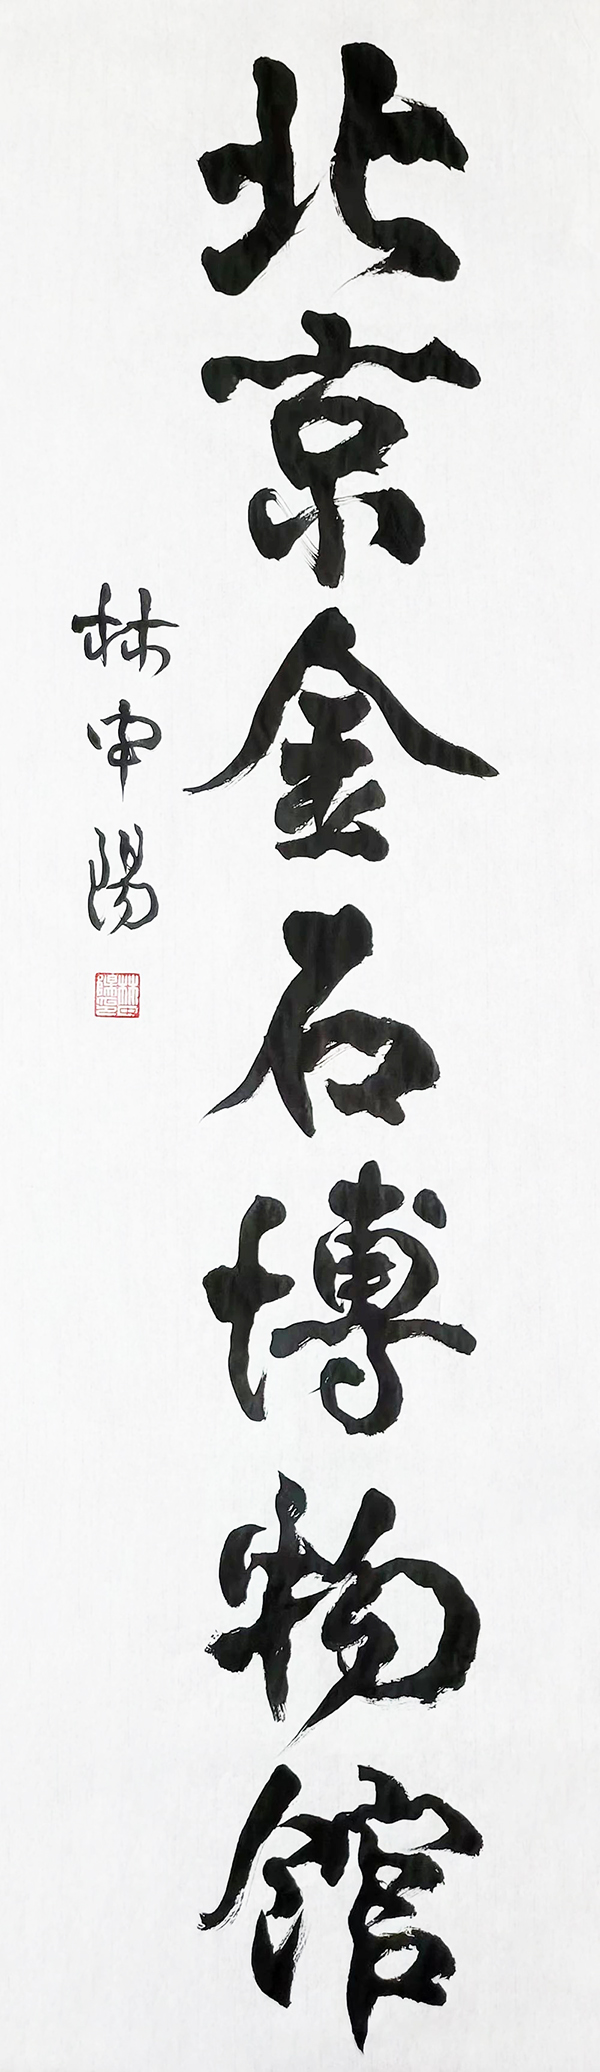 北京金石博物館
林申陽